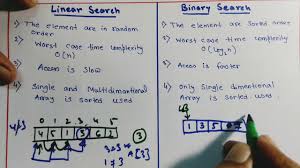 Linear Search
1) The element are in random
order
2) Worst case time complexity
O(n)
3) Access is slow
4) Only Single and Multidimentional
Array is used
0 1 2 3 4 5
4 5 1 3 6 2
3
A[3]
Binary Search
1) The element are in sorted
2) Worst case time complexity
O(log n)
3) Access is faster
4) Only Single dimentional
Array is sorted used
1 3 5